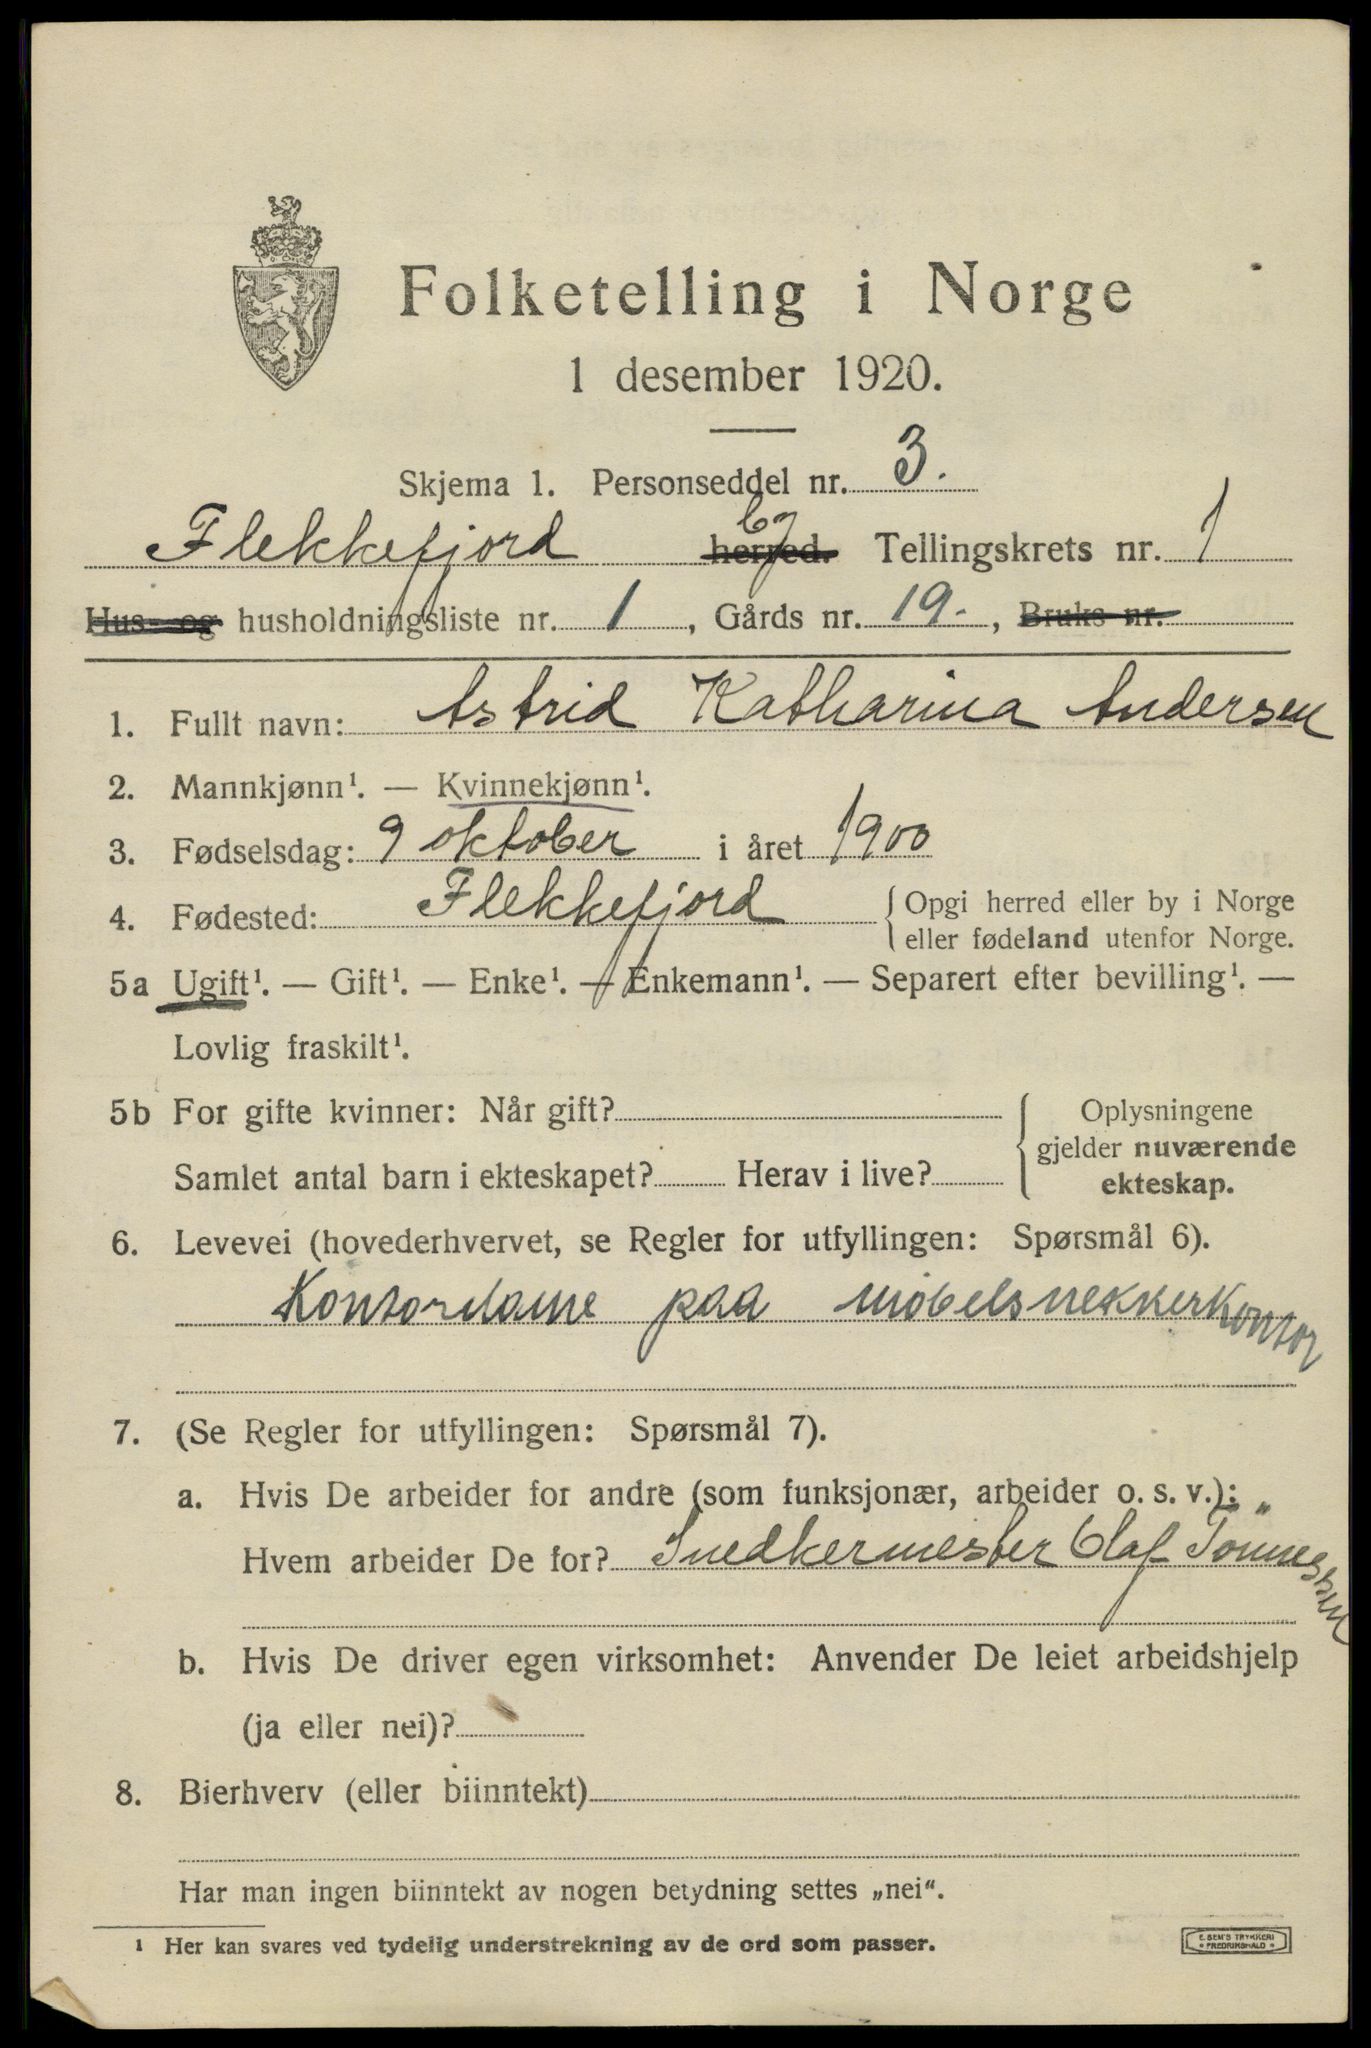 Folketelling i Norge
1 desember 1920.
Skjema 1. Personseddel nr. 3.
Flekkefjord herred. by Tellingskrets nr. 1
Hus- og husholdningsliste nr. 1, Gårds nr. 19., Bruks nr.
1. Fullt navn: Astrid Katharina Andersen
2. Mannkjønn¹. — Kvinnekjønn¹.
3. Fødselsdag: 9 oktober i året 1900
4. Fødested: Flekkefjord { Opgi herred eller by i Norge
eller fødeland utenfor Norge.
5a Ugift¹. — Gift¹. — Enke¹. — Enkemann¹. — Separert efter bevilling¹. —
Lovlig fraskilt¹.
5b For gifte kvinner: Når gift? { Oplysningene
gjelder nuværende
Samlet antal barn i ekteskapet? Herav i live? ekteskap.
6. Levevei (hovederhvervet, se Regler for utfyllingen: Spørsmål 6).
Kontordame paa møbelsnekkerkontor
7. (Se Regler for utfyllingen: Spørsmål 7).
a. Hvis De arbeider for andre (som funksjonær, arbeider o. s. v.):
Hvem arbeider De for? Snedkermester Olaf Tönnessen
b. Hvis De driver egen virksomhet: Anvender De leiet arbeidshjelp
(ja eller nei)?
8. Bierhverv (eller biinntekt)
Har man ingen biinntekt av nogen betydning settes „nei“.
¹ Her kan svares ved tydelig understrekning av de ord som passer.
E. SEM'S TRYKKERI
* FREDRIKSHALD *